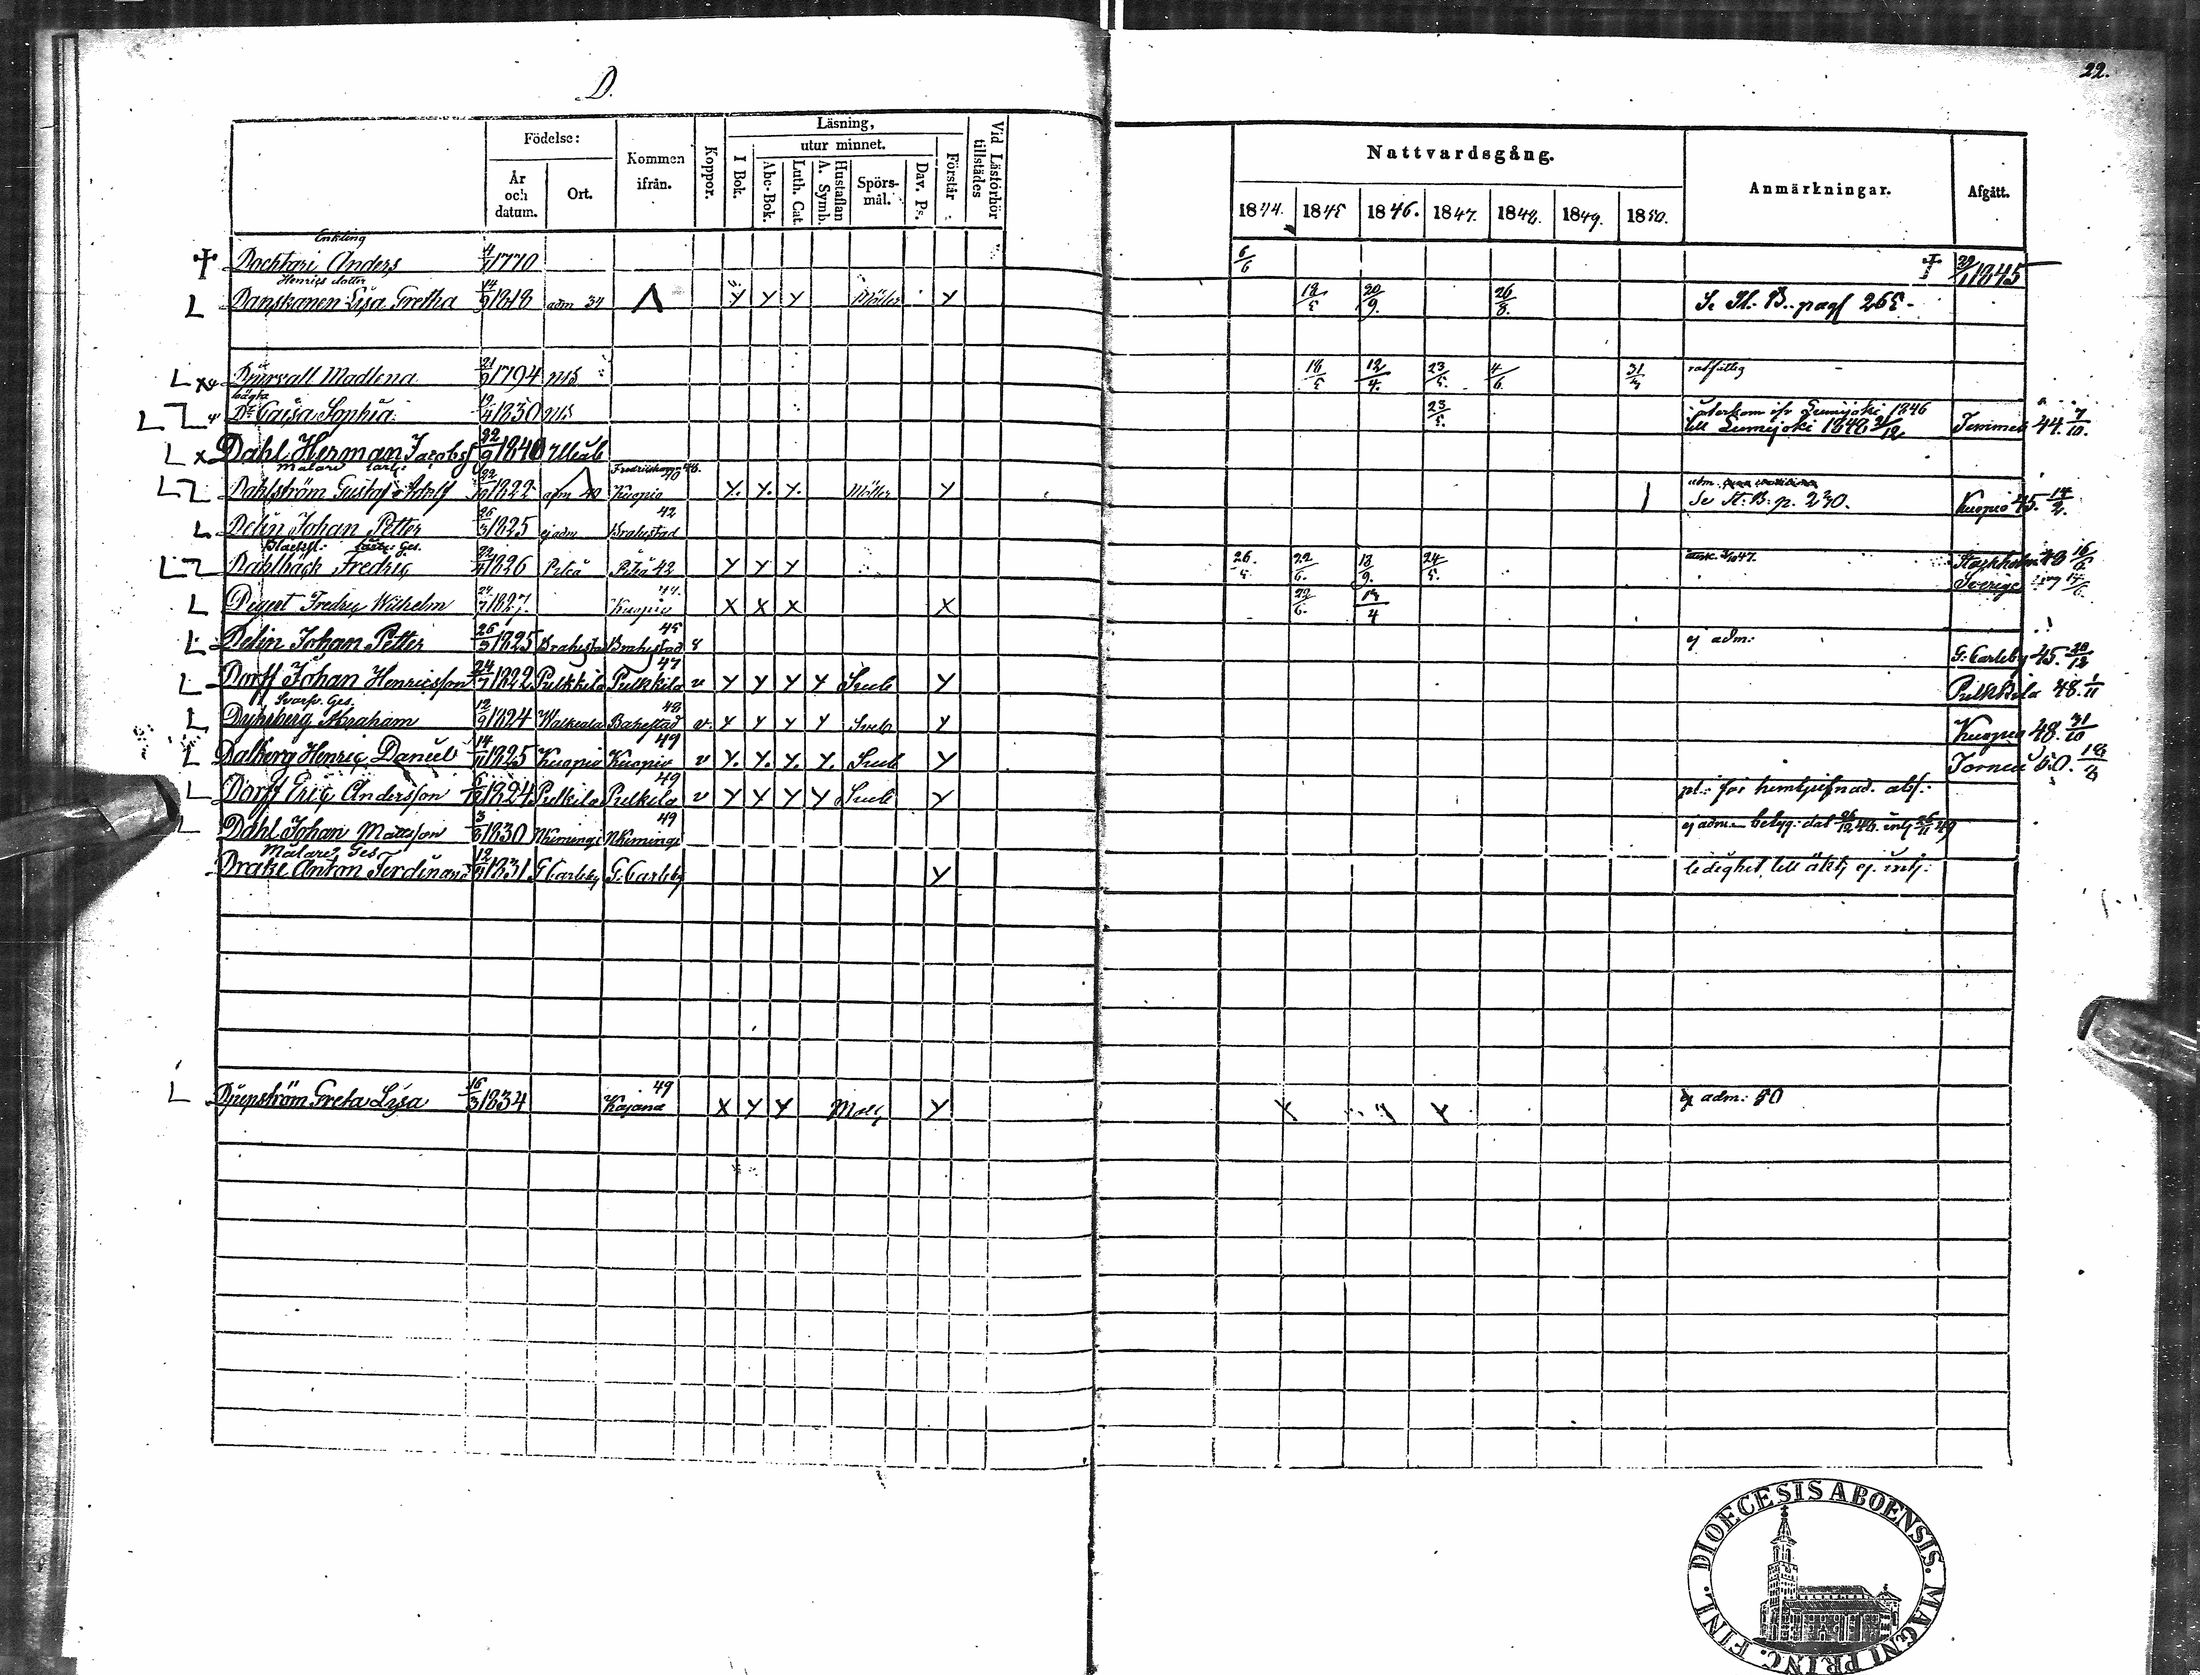 D.
22.
Födelse:
År och datum.
Ort.
Kommen ifrån.
Koppor.
Läsning,
utur minnet.
I Bok.
Abc-Bok.
Luth. Cat.
A. Symb.
Hustaflan
Spörsmål.
Dav. Ps.
Förstår
Vid Läsförhör tillstädes
Nattvardsgång.
1844. 1845 1846. 1847. 1848. 1849. 1850.
Anmärkningar.
Afgått.
Enkling
Dochtari Anders 4/1 1770 6/6 † 29/1 1845
Henrics dotter
Danskanen Lisa Gretha 14/9 1818 adm 34 Y Y Y Möller Y 18/5 20/9. 26/8. Se St. B. pag 265.
Djurvall Madlena 21/9 1794 18/5 12/4. 23/5. 4/6. 31/
Dr Caisa Sophia 19/4 1830 23/5. återkom ifr Lumijoki 1846
till Lumijoki 1848 Temmes 44. 7/10.
Dahl Herman Jacobs 22/9 1840 Uleåb
Målare
Dahlström Gustaf Adolf 1822 adm 40 Kuopio 40 Y. Y. Y. Möller Y Se St. B. p. 230. Kuopio 45. 14/2.
Delin Johan Petter 26/3 1825 ej adm Brahestad 42
Ges.
Dahlbäck Fredric 1826 Piteå Piteå 42 Y Y Y 26/5 22/6. 13/9. 24/5. Stockholm 16/6
Sverige
Degert Fredric Wilhelm 24/7 1827 Kuopio 44. X X X X 22/6. 13/4
Delin Johan Petter 26/3 1825 Brahestad Brahestad 45 ej adm: G: Carleby 45. 20/12
Dorff Johan Henricsson 24/7 1822 Pulkkila Pulkkila 47 v Y Y Y Y Sveb Y Pulkkila 48. 1/11
Svarf. Ges.
Abraham 12/9 1824 Walkeala 48 v. Y Y Y Y Sveb Y Kuopio 48. 31/10
Dalberg Henric Daniel 14/11 1825 Kuopio Kuopio 49 v Y. Y. Y. Y. Sveb Y Torneå 50. 18/6
Dorff Eric Andersson 6/12 1824 Pulkila Pulkila 49 v Y Y Y Y Sveb Y
Dahl Johan Mattsson 3/3 1830 NKiminge NKiminge 49 ej adm. betyg: dat 26/12 48. intj 26/11 49
Målare Ges
Drake Anton Ferdinand 12/ 1831 G Carleby G: Carleby Y ledighet till äkt. ej. intj:
Djupström Greta Lisa 16/3 1834 Kajana 49 X Y Y Y Y Y Y ej adm: 50
DIOECESIS ABOENSIS. MAGNI PRINC. FINL.